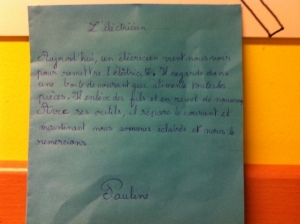 L'électricien
Aujourd'hui, un électricien vient nous voir
pour remettre l'électricité. Il regarde dans
une boîte de courant qui alimente toutes les
pièces. Il enlève des fils et en remet de nouveau
Avec ses outils, il répare le courant et
maintenant nous sommes éclairés et nous le
remercions.
Pauline